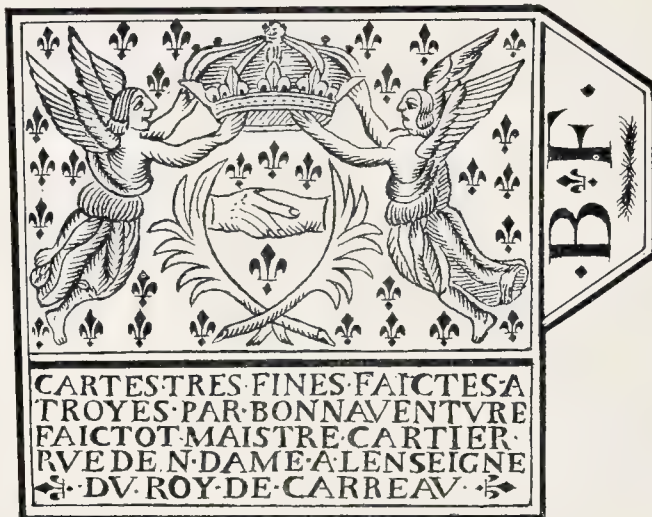 CARTES·TRES·FINES·FAICTES·A
TROYES·PAR·BONNAVENTVRE
FAICTOT·MAISTRE·CARTIER·
RVE DE N·DAME·A·LENSEIGNE
·DV·ROY·DE·CARREAV·
·B·F·